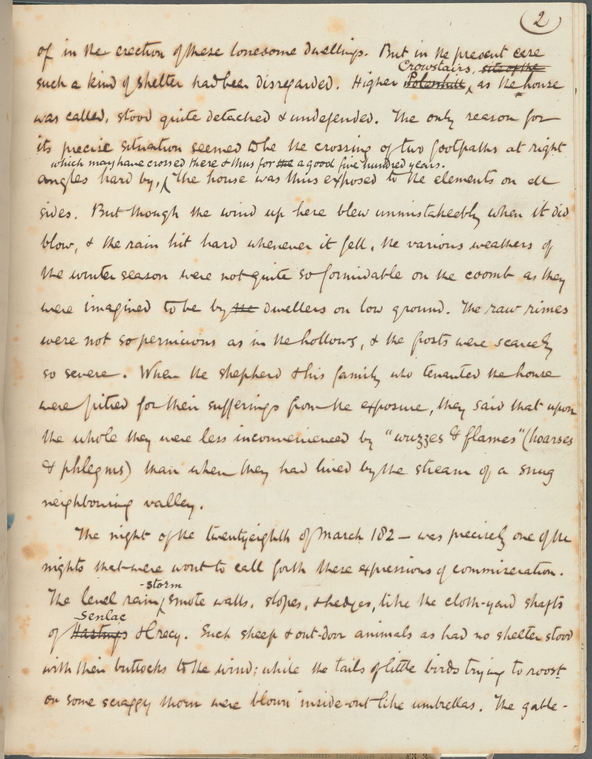 2
of in the erection of these lonesome dwellings. But in the present case
Crowstairs, site of the
such a kind of shelter had been disregarded. Higher Polenhill, as the house
was called, stood quite detached & undefended. The only reason for
its precise situation seemed to be the crossing of two footpaths at right
which may have crossed there & thus for the a good five hundred years.
angles hard by, the house was thus exposed to the elements on all
sides. But though the wind up here blew unmistakeably when it did
blow, & the rain hit hard whenever it fell, the various weathers of
the winter season were not quite so formidable on the coomb as they
were imagined to be by the dwellers on low ground. The raw rimes
were not so pernicious as in the hollows, & the frosts were scarcely
so severe. When the shepherd & his family who tenanted the house
were pitied for their sufferings from the exposure, they said that upon
the whole they were less inconvenienced by "wuzzes & flames" (hoarses
& phlegms) than when they had lived by the stream of a snug
neighbouring valley.
The night of the twentyeighth of March 182– was precisely one of the
nights that were wont to call forth these expressions of commiseration.
-storm
The level rain smote walls, slopes, & hedges, like the cloth-yard shafts
Senlac
of Hastings & Crecy. Such sheep & out-door animals as had no shelter stood
with their buttocks to the wind; while the tails of little birds trying to roost
on some scraggy thorn were blown inside-out like umbrellas. The gable-